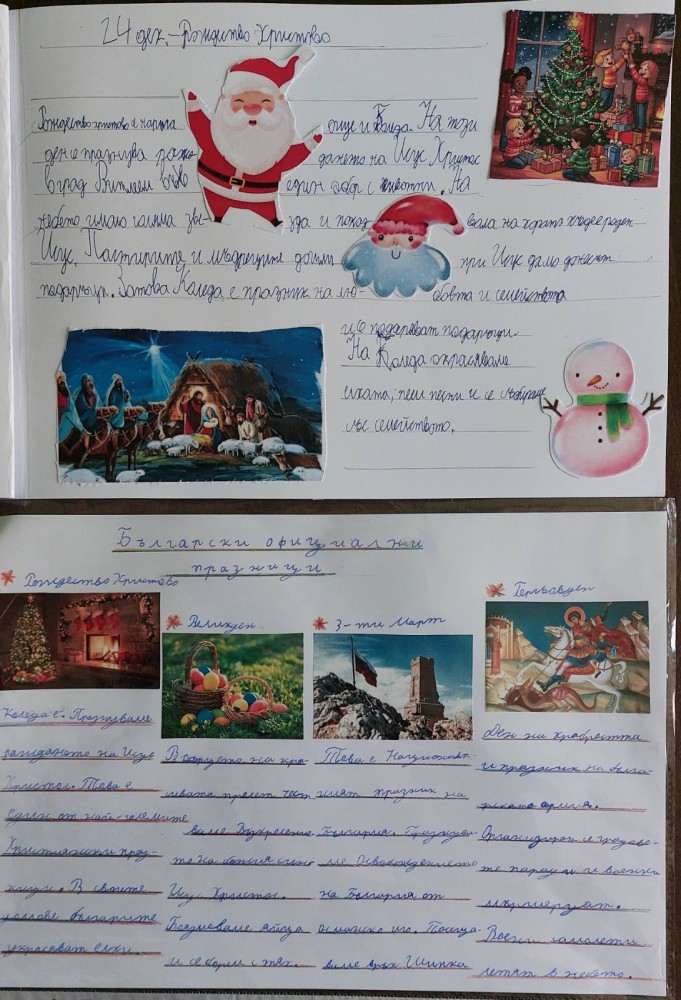 24 дек. - Рождество Христово
Рождество христово е нарича още и Коледа. На този
ден е празнува раж- дането на Исус Христос
в град Витлеем във един обор с животни. На
небето имало голяма зве- зда и показ вала на хората къде е роден
Исус. Пастирите и мъдреците дошли при Исус да му донесат
подаръци. Затова Коледа е празник на лю- бовта и семейството
и се подаряват подаръци.
На Коледа украсяваме
елхата, пеем песни и се събираме
със семейството.
Български официални
празници
Рождество Христово
Коледа е. Празнуваме
раждането на Исус
Христос. Това е
един от най-големите
Християнски праз-
ници. В своите
домове българите
украсяват елхи.
Великден
В сърцето на кра-
сивата пролет чест
ваме Възкресение-
то на божия син
Исус Христос.
Боядисваме яйца
и се борим с тях.
3-ти Март
Това е Национал-
ният празник на
България. Празнува-
ме Освобождението
на България от
османско иго. Посеща-
ваме връх Шипка
Гергьовден
Ден на храбростта
и празник на бълга-
рската армия.
Организират се градове-
те паради и военни
маршируват.
Военни самолети
летят в небето.